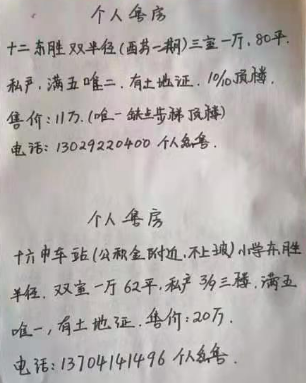 个人售房
十二东胜双学位(西苑一期)三室一厅,80平.
私产,满五唯二,有土地证.10/10顶楼.
售价:11万.(唯一缺点步梯顶楼)
电话:13029220400 个人急售.
个人售房
十六中车站(公积金附近,不上坡)小学东胜
学位.双室一厅62平,私产3/9三楼,满五
唯一,有土地证.售价:20万.
电话:13704141496 个人急售.